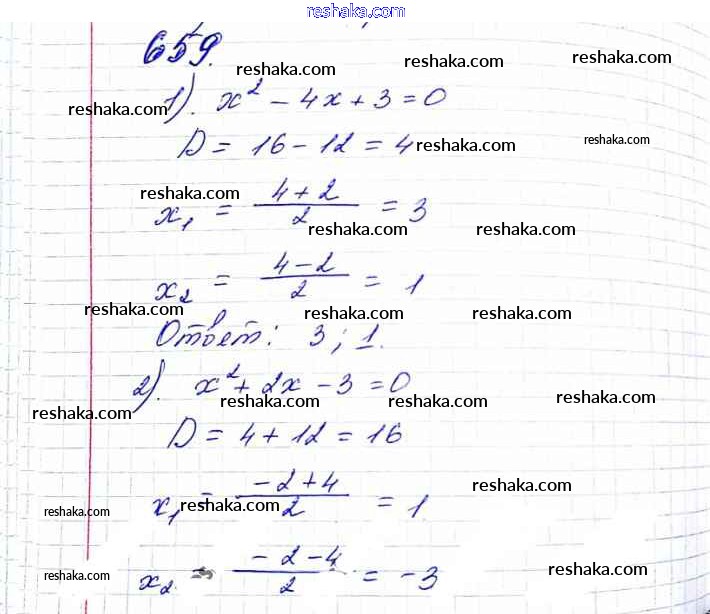 reshaka.com
659.
reshaka.com reshaka.com reshaka.com
1). x² - 4x + 3 = 0
reshaka.com
D = 16 - 12 = 4
reshaka.com reshaka.com
reshaka.com
x₁ = (4 + 2)/2 = 3
reshaka.com reshaka.com
x₂ = (4 - 2)/2 = 1
reshaka.com reshaka.com reshaka.com
Ответ: 3; 1.
2). x² + 2x - 3 = 0
reshaka.com reshaka.com reshaka.com
D = 4 + 12 = 16
x₁ = (-2 + 4)/2 = 1
reshaka.com
reshaka.com reshaka.com
x₂ = (-2 - 4)/2 = -3
reshaka.com reshaka.com